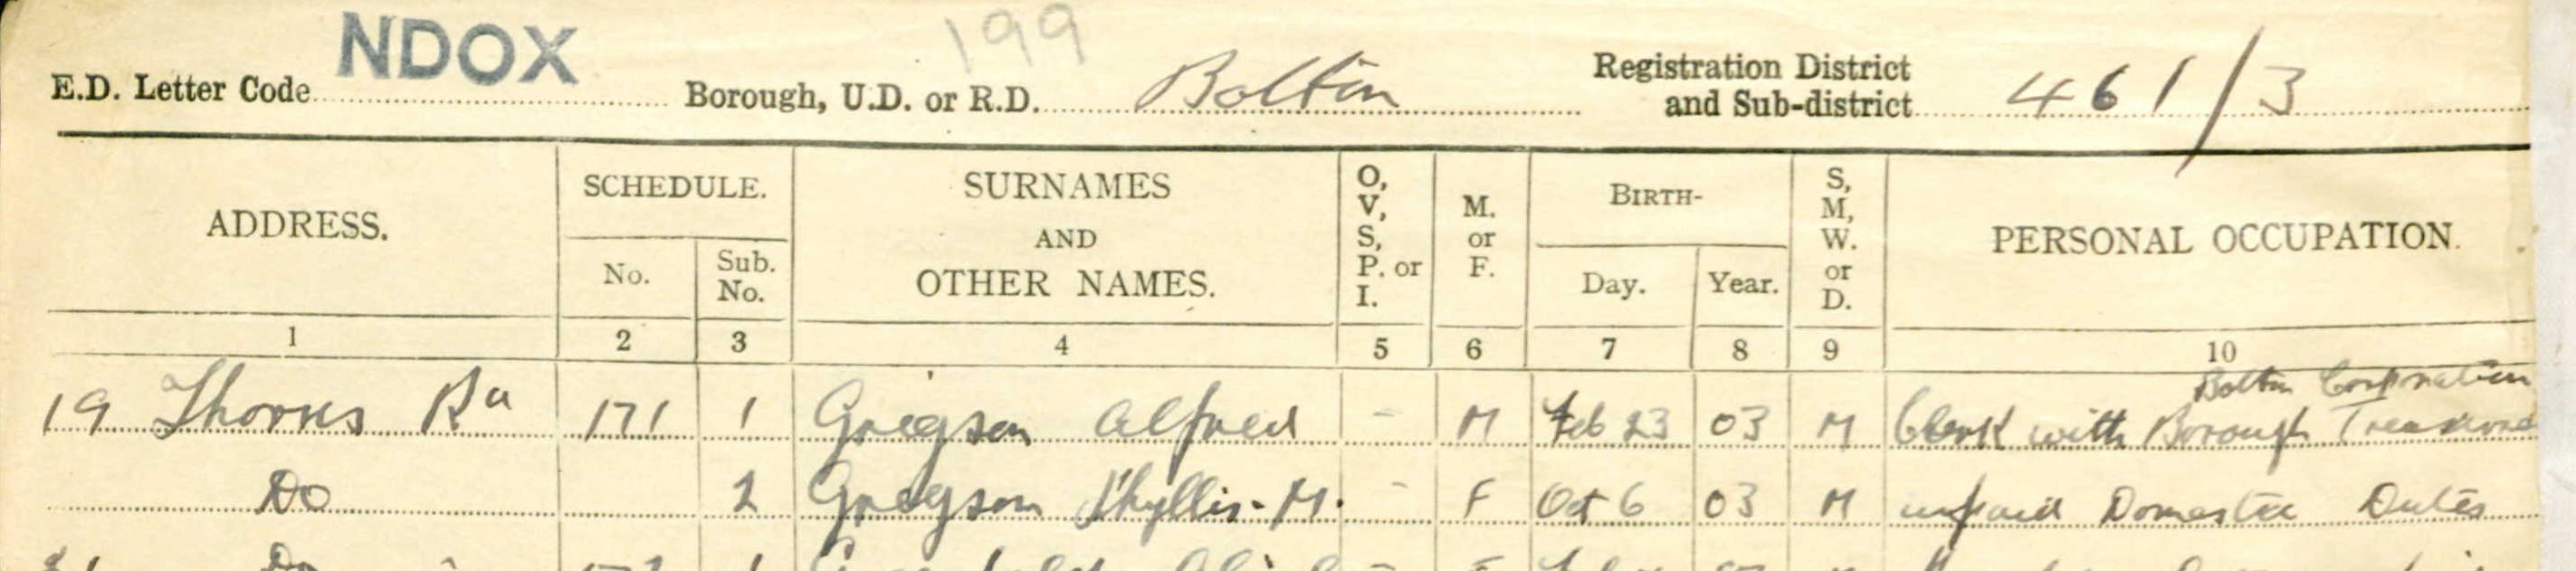 199
E.D. Letter Code NDOX Borough, U.D. or R.D. Bolton Registration District and Sub-district 461/3
ADDRESS. SCHEDULE. SURNAMES AND OTHER NAMES. O, V, S, P. or I. M. or F. BIRTH- S, M, W. or D. PERSONAL OCCUPATION.
No. Sub. No. Day. Year.
1 2 3 4 5 6 7 8 9 10
Bolton Corporation
19 Thorns Rd 171 1 Gregson Alfred - M Feb 23 03 M Clerk with Borough Treasurer
Do 2 Gregson Phyllis-M. - F Oct 6 03 M unpaid Domestic Duties